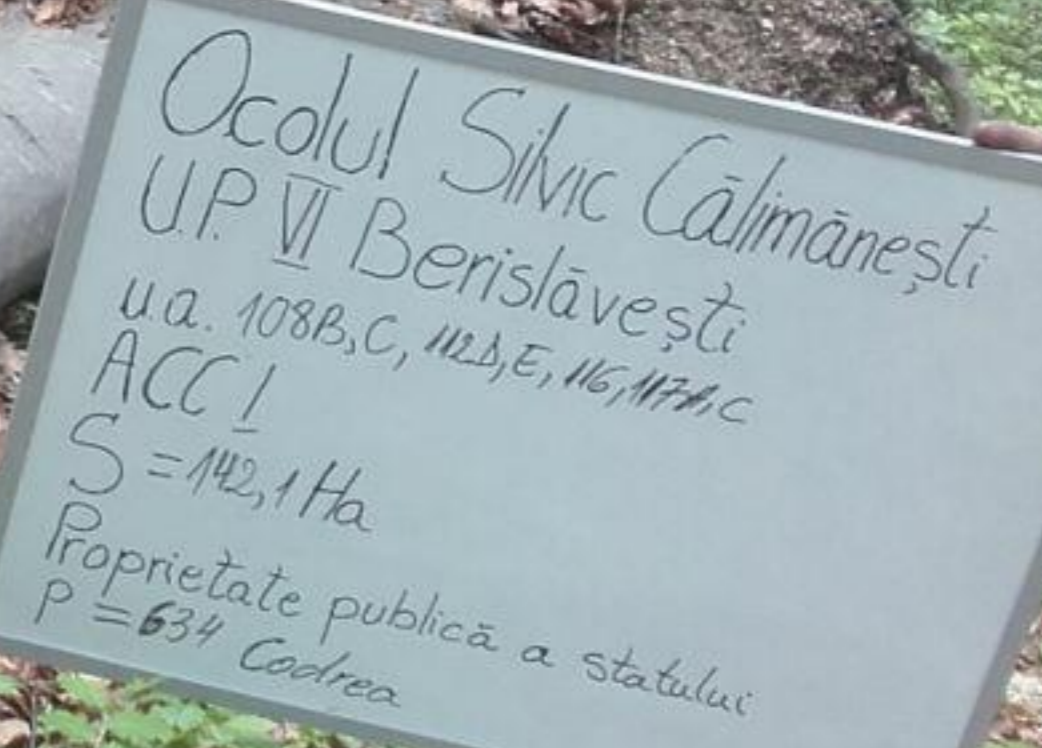 Ocolul Silvic Călimănești
U.P. VI Berislăvești
u.a. 108B, C, 112D, E, 116, 117A, C
ACC I
S = 142,1 Ha
Proprietate publică a statului
P = 634 Codrea